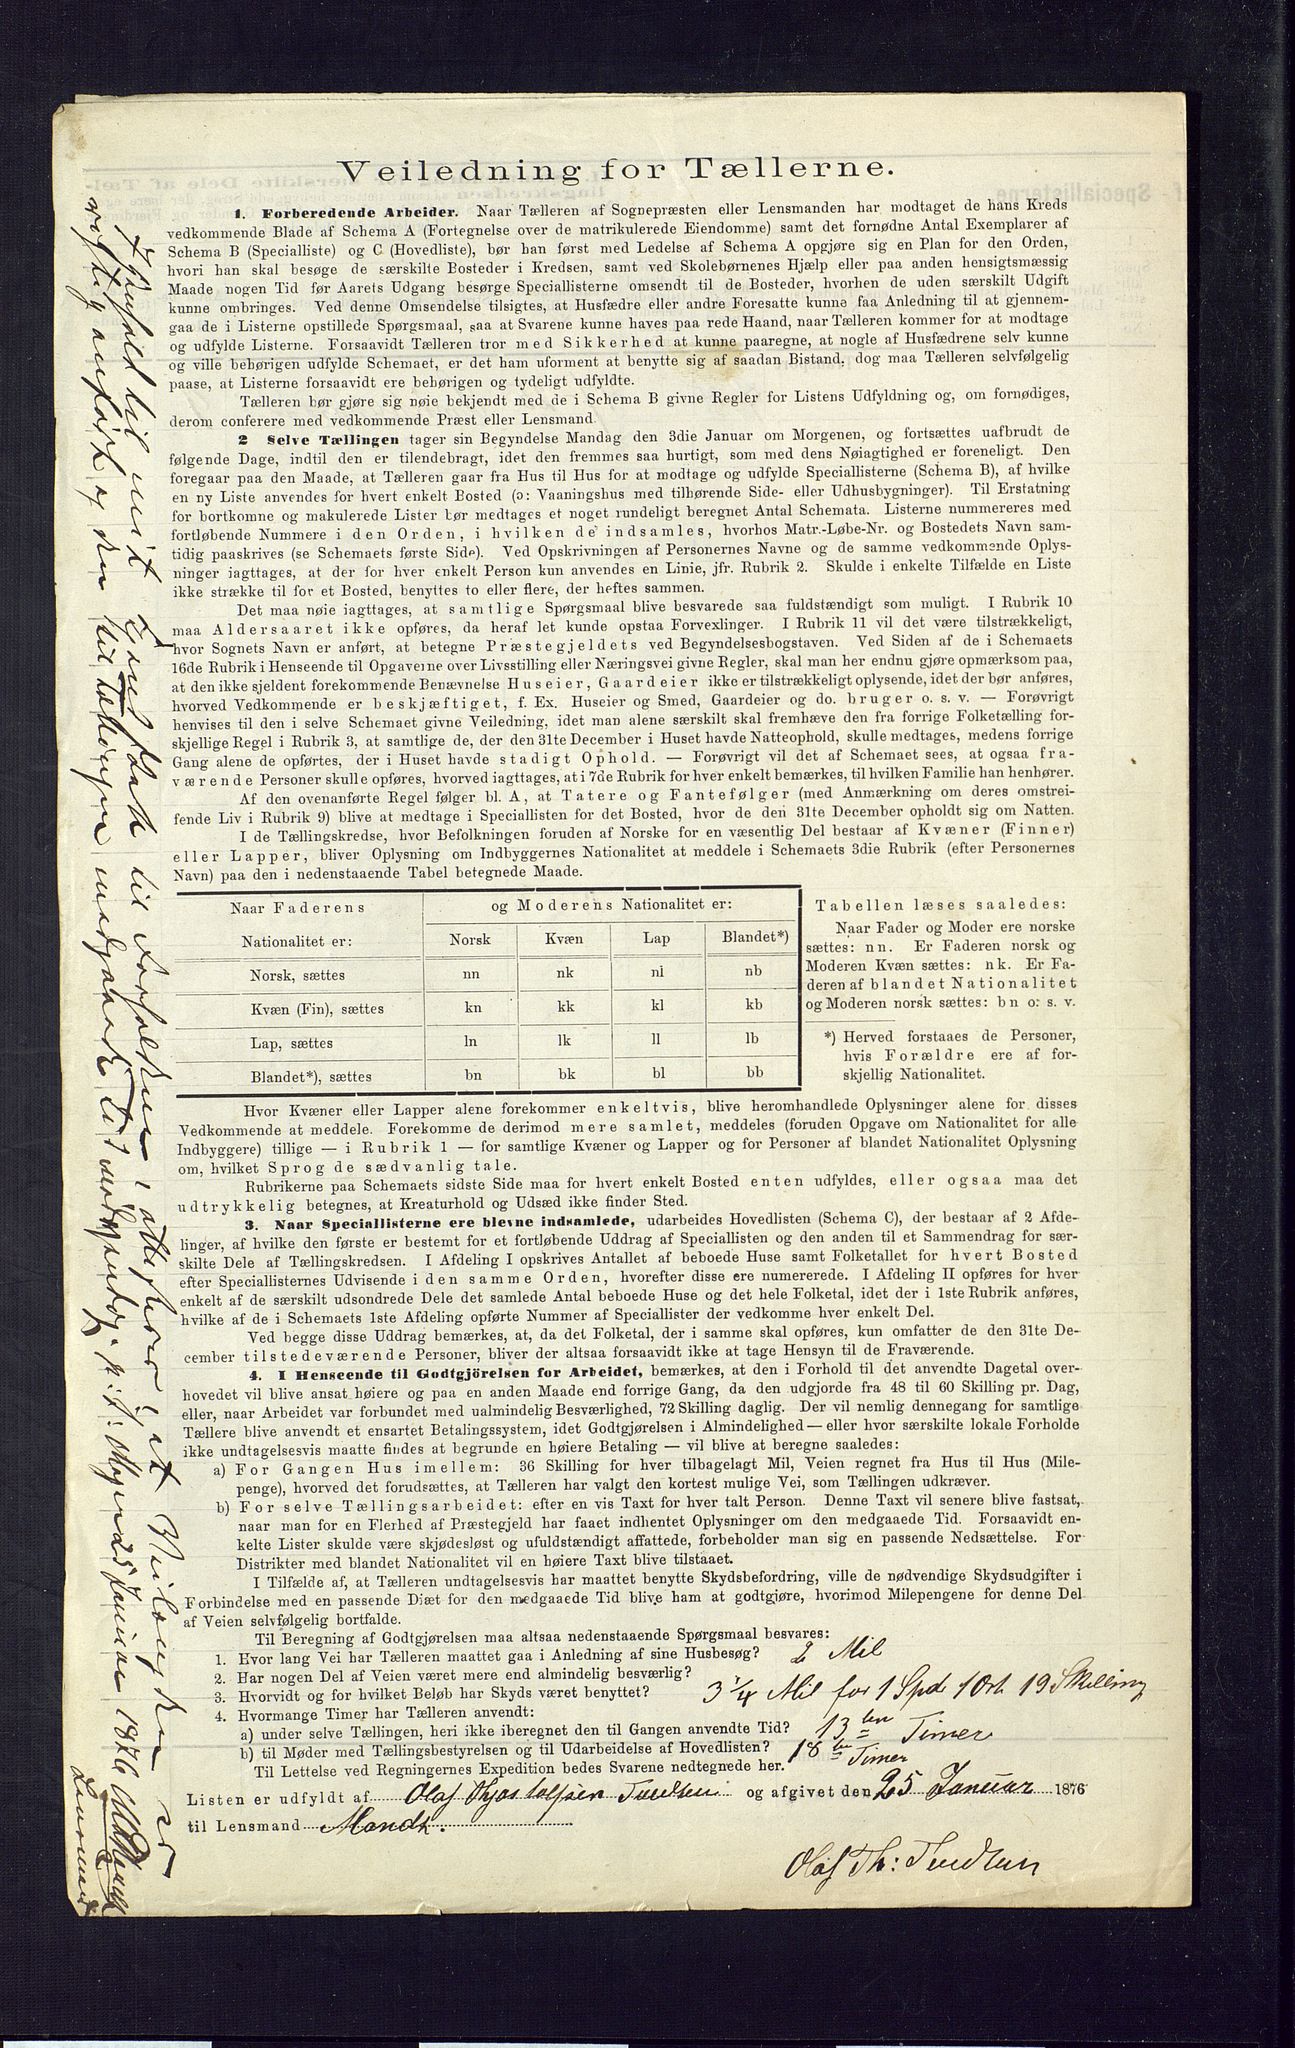 Veiledning for Tællerne.
1. Forberedende Arbeider. Naar Tælleren af Sognepræsten eller Lensmanden har modtaget de hans Kreds
vedkommende Blade af Schema A (Fortegnelse over de matrikulerede Eiendomme) samt det fornødne Antal Exemplarer af
Schema B (Specialliste) og C (Hovedliste), bør han først med Ledelse af Schema A opgjøre sig en Plan for den Orden,
hvori han skal besøge de særskilte Bosteder i Kredsen, samt ved Skolebørnenes Hjælp eller paa anden hensigtsmæssig
Maade nogen Tid før Aarets Udgang besørge Speciallisterne omsendt til de Bosteder, hvorhen de uden særskilt Udgift
kunne ombringes. Ved denne Omsendelse tilsigtes, at Husfædre eller andre Foresatte kunne faa Anledning til at gjennem-
gaa de i Listerne opstillede Spørgsmaal, saa at Svarene kunne haves paa rede Haand, naar Tælleren kommer for at modtage
og udfylde Listerne. Forsaavidt Tælleren tror med Sikkerhed at kunne paaregne, at nogle af Husfædrene selv kunne
og ville behørigen udfylde Schemaet, er det ham uforment at benytte sig af saadan Bistand, dog maa Tælleren selvfølgelig
paase, at Listerne forsaavidt ere behørigen og tydeligt udfyldte.
Tælleren bør gjøre sig nøie bekjendt med de i Schema B givne Regler for Listens Udfyldning og, om fornødiges,
derom conferere med vedkommende Præst eller Lensmand.
2 Selve Tællingen tager sin Begyndelse Mandag den 3die Januar om Morgenen, og fortsættes uafbrudt de
følgende Dage, indtil den er tilendebragt, idet den fremmes saa hurtigt, som med dens Nøiagtighed er foreneligt. Den
foregaar paa den Maade, at Tælleren gaar fra Hus til Hus for at modtage og udfylde Speciallisterne (Schema B), af hvilke
en ny Liste anvendes for hvert enkelt Bosted (ɔ: Vaaningshus med tilhørende Side- eller Udhusbygninger). Til Erstatning
for bortkomne og makulerede Lister bør medtages et noget rundeligt beregnet Antal Schemata. Listerne nummereres med
fortløbende Nummere i den Orden, i hvilken de indsamles, hvorhos Matr.-Løbe-Nr. og Bostedets Navn sam-
tidig paaskrives (se Schemaets første Side). Ved Opskrivningen af Personernes Navne og de samme vedkommende Oplys-
ninger iagttages, at der for hver enkelt Person kun anvendes en Linie, jfr. Rubrik 2. Skulde i enkelte Tilfælde en Liste
ikke strække til for et Bosted, benyttes to eller flere, der heftes sammen.
Det maa nøie iagttages, at samtlige Spørgsmaal blive besvarede saa fuldstændigt som muligt. I Rubrik 10
maa Aldersaaret ikke opføres, da heraf let kunde opstaa Forvexlinger. I Rubrik 11 vil det være tilstrækkeligt,
hvor Sognets Navn er anført, at betegne Præstegjeldets ved Begyndelsesbogstaven. Ved Siden af de i Schemaets
16de Rubrik i Henseende til Opgaverne over Livsstilling eller Næringsvei givne Regler, skal man her endnu gjøre opmærksom paa,
at den ikke sjeldent forekommende Benævnelse Huseier, Gaardeier ikke er tilstrækkeligt oplysende, idet der bør anføres,
hvorved Vedkommende er beskjæftiget, f. Ex. Huseier og Smed, Gaardeier og do. bruger o. s. v. — Forøvrigt
henvises til den i selve Schemaet givne Veiledning, idet man alene særskilt skal fremhæve den fra forrige Folketælling for-
skjellige Regel i Rubrik 3, at samtlige de, der den 31te December i Huset havde Natteophold, skulle medtages, medens forrige
Gang alene de opførtes, der i Huset havde stadigt Ophold. — Forøvrigt vil det af Schemaet sees, at ogsaa fra-
værende Personer skulle opføres, hvorved iagttages, at i 7de Rubrik for hver enkelt bemærkes, til hvilken Familie han henhører.
Af den ovenanførte Regel følger bl. A, at Tatere og Fantefølger (med Anmærkning om deres omstrei-
fende Liv i Rubrik 9) blive at medtage i Speciallisten for det Bosted, hvor de den 31te December opholdt sig om Natten.
I de Tællingskredse, hvor Befolkningen foruden af Norske for en væsentlig Del bestaar af Kvæner (Finner)
eller Lapper, bliver Oplysning om Indbyggernes Nationalitet at meddele i Schemaets 3die Rubrik (efter Personernes
Navn) paa den i nedenstaaende Tabel betegnede Maade.
Naar Faderens og Moderens Nationalitet er:
Nationalitet er: Norsk Kvæn Lap Blandet*)
Norsk, sættes nn nk nl nb
Kvæn (Fin), sættes kn kk kl kb
Lap, sættes ln lk ll lb
Blandet*), sættes bn bk bl bb
Tabellen læses saaledes:
Naar Fader og Moder ere norske
sættes: nn. Er Faderen norsk og
Moderen Kvæn sættes: nk. Er Fa-
deren af blandet Nationalitet
og Moderen norsk sættes: bn o. s. v.
*) Herved forstaaes de Personer,
hvis Forældre ere af for-
skjellig Nationalitet.
Hvor Kvæner eller Lapper alene forekommer enkeltvis, blive heromhandlede Oplysninger alene for disses
Vedkommende at meddele. Forekomme de derimod mere samlet, meddeles (foruden Opgave om Nationalitet for alle
Indbyggere) tillige — i Rubrik 1 — for samtlige Kvæner og Lapper og for Personer af blandet Nationalitet Oplysning
om, hvilket Sprog de sædvanlig tale.
Rubrikerne paa Schemaets sidste Side maa for hvert enkelt Bosted enten udfyldes, eller ogsaa maa det
udtrykkelig betegnes, at Kreaturhold og Udsæd ikke finder Sted.
3. Naar Speciallisterne ere blevne indsamlede, udarbeides Hovedlisten (Schema C), der bestaar af 2 Afde-
linger, af hvilke den første er bestemt for et fortløbende Uddrag af Speciallisten og den anden til et Sammendrag for sær-
skilte Dele af Tællingskredsen. I Afdeling I opskrives Antallet af beboede Huse samt Folketallet for hvert Bosted
efter Speciallisternes Udvisende i den samme Orden, hvorefter disse ere numererede. I Afdeling II opføres for hver
enkelt af de særskilt udsondrede Dele det samlede Antal beboede Huse og det hele Folketal, idet der i 1ste Rubrik anføres,
hvilke af de i Schemaets 1ste Afdeling opførte Nummer af Speciallister der vedkomme hver enkelt Del.
Ved begge disse Uddrag bemærkes, at, da det Folketal, der i samme skal opføres, kun omfatter de den 31te De-
cember tilstedeværende Personer, bliver der altsaa forsaavidt ikke at tage Hensyn til de Fraværende.
4. I Henseende til Godtgjörelsen for Arbeidet, bemærkes, at den i Forhold til det anvendte Dagetal over-
hovedet vil blive ansat høiere og paa en anden Maade end forrige Gang, da den udgjorde fra 48 til 60 Skilling pr. Dag,
eller, naar Arbeidet var forbundet med ualmindelig Besværlighed, 72 Skilling daglig. Der vil nemlig dennegang for samtlige
Tællere blive anvendt et ensartet Betalingssystem, idet Godtgjørelsen i Almindelighed — eller hvor særskilte lokale Forholde
ikke undtagelsesvis maatte findes at begrunde en høiere Betaling — vil blive at beregne saaledes:
a) For Gangen Hus imellem: 36 Skilling for hver tilbagelagt Mil, Veien regnet fra Hus til Hus (Mile-
penge), hvorved det forudsættes, at Tælleren har valgt den kortest mulige Vei, som Tællingen udkræver.
b) For selve Tællingsarbeidet: efter en vis Taxt for hver talt Person. Denne Taxt vil senere blive fastsat,
naar man for en Flerhed af Præstegjeld har faaet indhentet Oplysninger om den medgaaede Tid. Forsaavidt en-
kelte Lister skulde være skjødesløst og ufuldstændigt affattede, forbeholder man sig en passende Nedsættelse. For
Distrikter med blandet Nationalitet vil en høiere Taxt blive tilstaaet.
I Tilfælde af, at Tælleren undtagelsesvis har maattet benytte Skydsbefordring, ville de nødvendige Skydsudgifter i
Forbindelse med en passende Diæt for den medgaaede Tid blive ham at godtgjøre, hvorimod Milepengene for denne Del
af Veien selvfølgelig bortfalde.
Til Beregning af Godtgjørelsen maa altsaa nedenstaaende Spørgsmaal besvares:
1. Hvor lang Vei har Tælleren maattet gaa i Anledning af sine Husbesøg? 2 Mil
2. Har nogen Del af Veien været mere end almindelig besværlig?
3. Hvorvidt og for hvilket Beløb har Skyds været benyttet? 3 1/4 Mil for 1 Spd 1 Ort 19 Skilling
4. Hvormange Timer har Tælleren anvendt:
a) under selve Tællingen, heri ikke iberegnet den til Gangen anvendte Tid? 13 ten Timer
b) til Møder med Tællingsbestyrelsen og til Udarbeidelse af Hovedlisten? 18 ten Timer
Til Lettelse ved Regningernes Expedition bedes Svarene nedtegnede her.
Listen er udfyldt af Olaf og afgivet den 25 Januar 1876
til Lensmand
Olaf Th:
I Henhold til mit til i
rigtig anført og den til Tællingen medgaaede Tid 25 Januar 1876
Lensmand